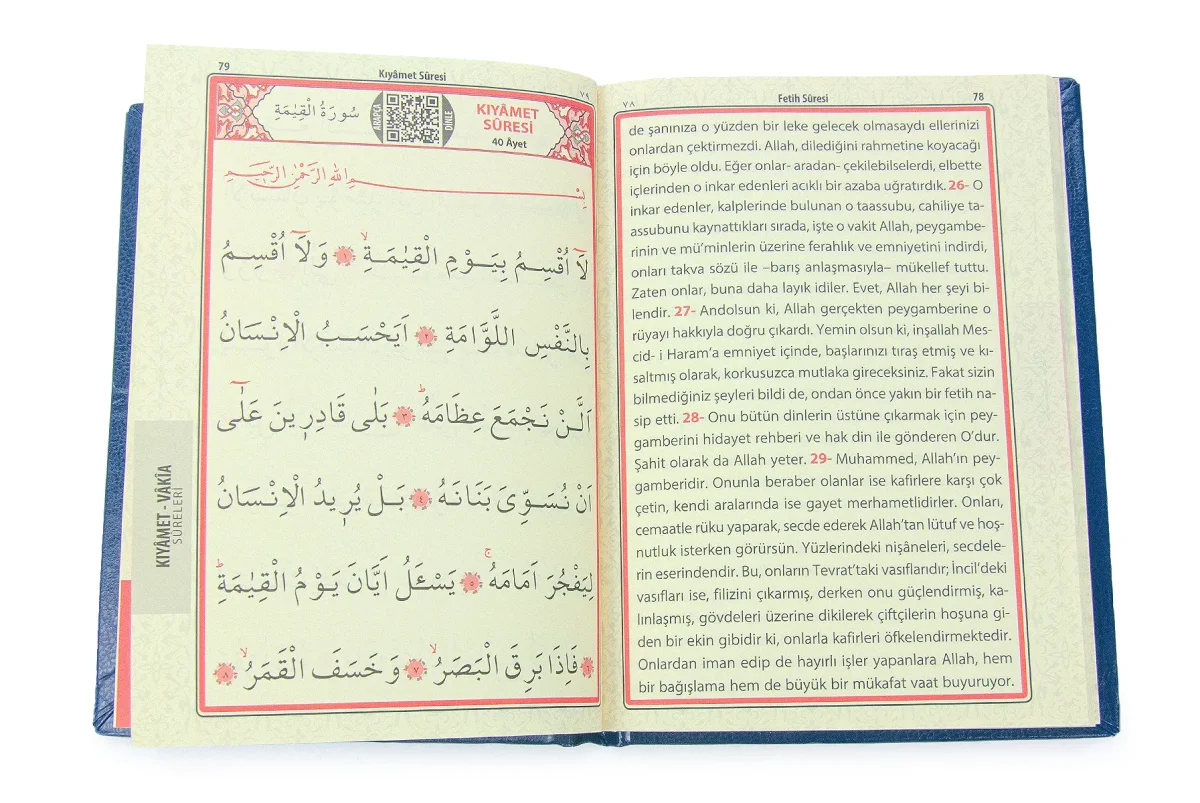 79
Kıyâmet Sûresi
٧٩
سُورَةُ الْقِيٰمَةِ
ARAPÇA
DİNLE
KIYÂMET
SÛRESİ
40 Âyet
بِسْمِ اللهِ الرَّحْمٰنِ الرَّحِيمِ
لَٓا اُقْسِمُ بِيَوْمِ الْقِيٰمَةِۙ ١ وَلَٓا اُقْسِمُ
بِالنَّفْسِ اللَّوَّامَةِ ٢ اَيَحْسَبُ الْاِنْسَانُ
اَلَّنْ نَجْمَعَ عِظَامَهُۜ ٣ بَلٰى قَادِر۪ينَ عَلٰٓى
اَنْ نُسَوِّىَ بَنَانَهُ ٤ بَلْ يُر۪يدُ الْاِنْسَانُ
لِيَفْجُرَ اَمَامَهُۚ ٥ يَسْـَٔلُ اَيَّانَ يَوْمُ الْقِيٰمَةِۜ
٦ فَاِذَا بَرِقَ الْبَصَرُۙ ٧ وَخَسَفَ الْقَمَرُۙ ٨
KIYÂMET - VÂKİA
SÛRELERİ
٧٨
Fetih Sûresi
78
de şanınıza o yüzden bir leke gelecek olmasaydı ellerinizi
onlardan çektirmezdi. Allah, dilediğini rahmetine koyacağı
için böyle oldu. Eğer onlar- aradan- çekilebilselerdi, elbette
içlerinden o inkar edenleri acıklı bir azaba uğratırdık. 26- O
inkar edenler, kalplerinde bulunan o taassubu, cahiliye ta-
assubunu kaynattıkları sırada, işte o vakit Allah, peygambe-
rinin ve mü'minlerin üzerine ferahlık ve emniyetini indirdi,
onları takva sözü ile –barış anlaşmasıyla– mükellef tuttu.
Zaten onlar, buna daha layık idiler. Evet, Allah her şeyi bi-
lendir. 27- Andolsun ki, Allah gerçekten peygamberine o
rüyayı hakkıyla doğru çıkardı. Yemin olsun ki, inşallah Mes-
cid- i Haram'a emniyet içinde, başlarınızı tıraş etmiş ve kı-
saltmış olarak, korkusuzca mutlaka gireceksiniz. Fakat sizin
bilmediğiniz şeyleri bildi de, ondan önce yakın bir fetih na-
sip etti. 28- Onu bütün dinlerin üstüne çıkarmak için pey-
gamberini hidayet rehberi ve hak din ile gönderen O'dur.
Şahit olarak da Allah yeter. 29- Muhammed, Allah'ın pey-
gamberidir. Onunla beraber olanlar ise kafirlere karşı çok
çetin, kendi aralarında ise gayet merhametlidirler. Onları,
cemaatle rüku yaparak, secde ederek Allah'tan lütuf ve hoş-
nutluk isterken görürsün. Yüzlerindeki nişâneleri, secdele-
rin eserindendir. Bu, onların Tevrat'taki vasıflarıdır; İncil'deki
vasıfları ise, filizini çıkarmış, derken onu güçlendirmiş, ka-
lınlaşmış, gövdeleri üzerine dikilerek çiftçilerin hoşuna gi-
den bir ekin gibidir ki, onlarla kafirleri öfkelendirmektedir.
Onlardan iman edip de hayırlı işler yapanlara Allah, hem
bir bağışlama hem de büyük bir mükafat vaat buyuruyor.